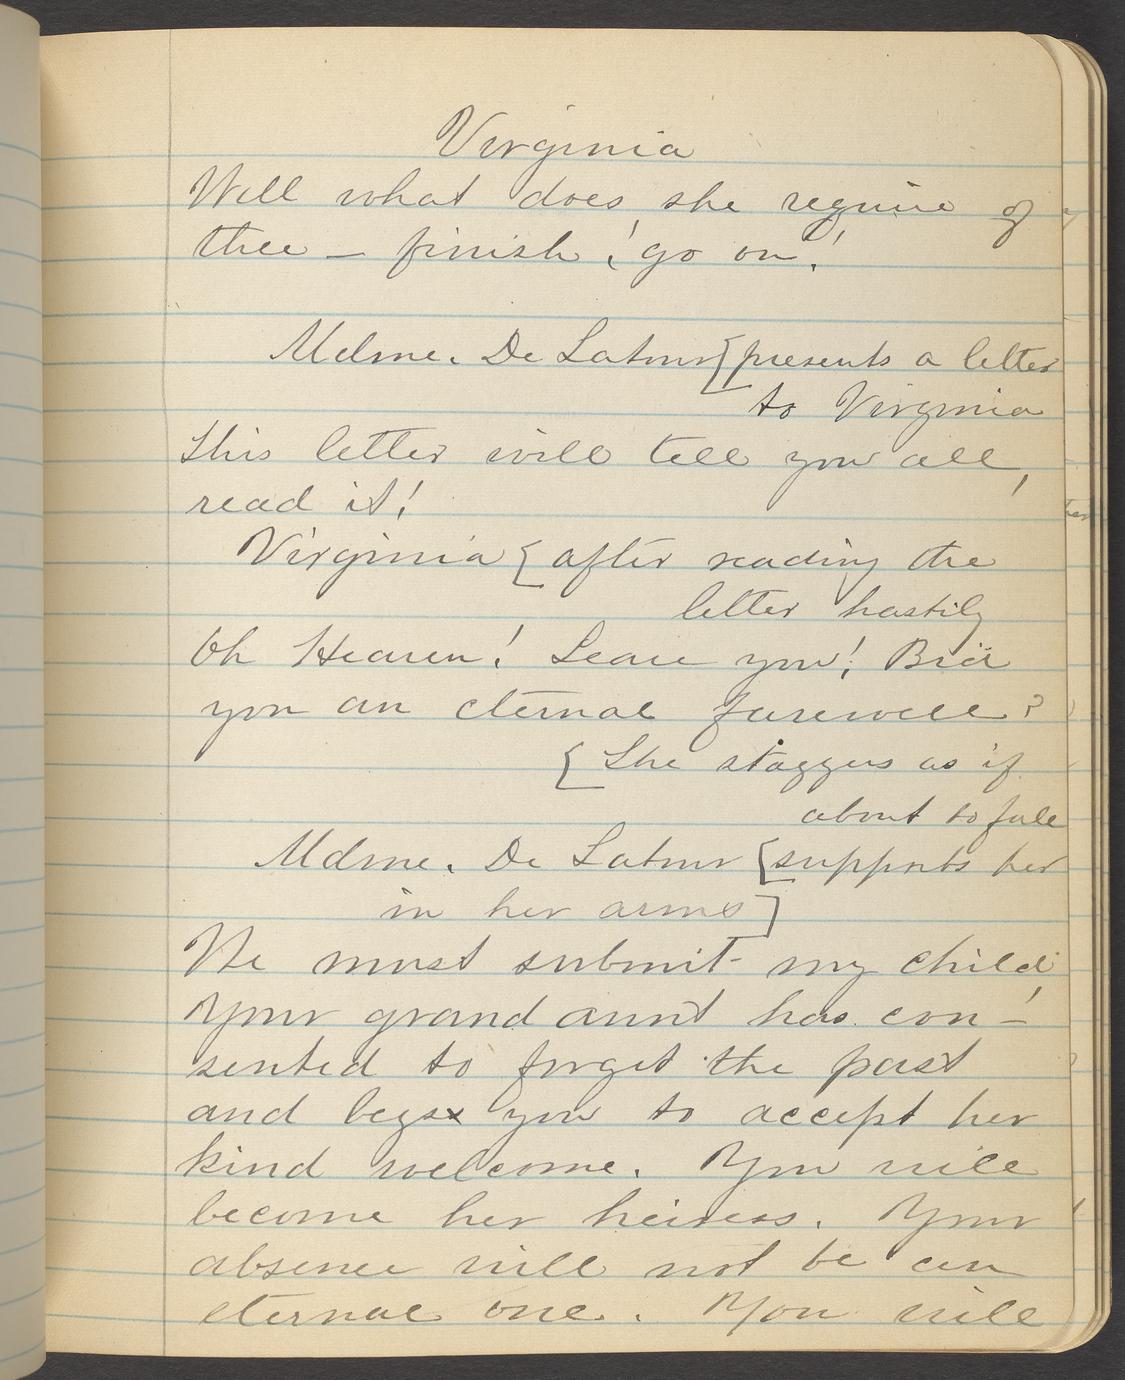 Virginia
Well what does she require of
thee — finish! go on!
Mdme. De Latour [presents a letter
to Virginia
This letter will tell you all,
read it!
Virginia [after reading the
letter hastily
Oh Heaven! Leave you! Bid
you an eternal farewell?
[She staggers as if
about to fall
Mdme. De Latour [supports her
in her arms]
We must submit - my child,
Your grand aunt has con-
sented to forget the past
and begs you to accept her
kind welcome. You will
become her heiress. Your
absence will not be an
eternal one. You will